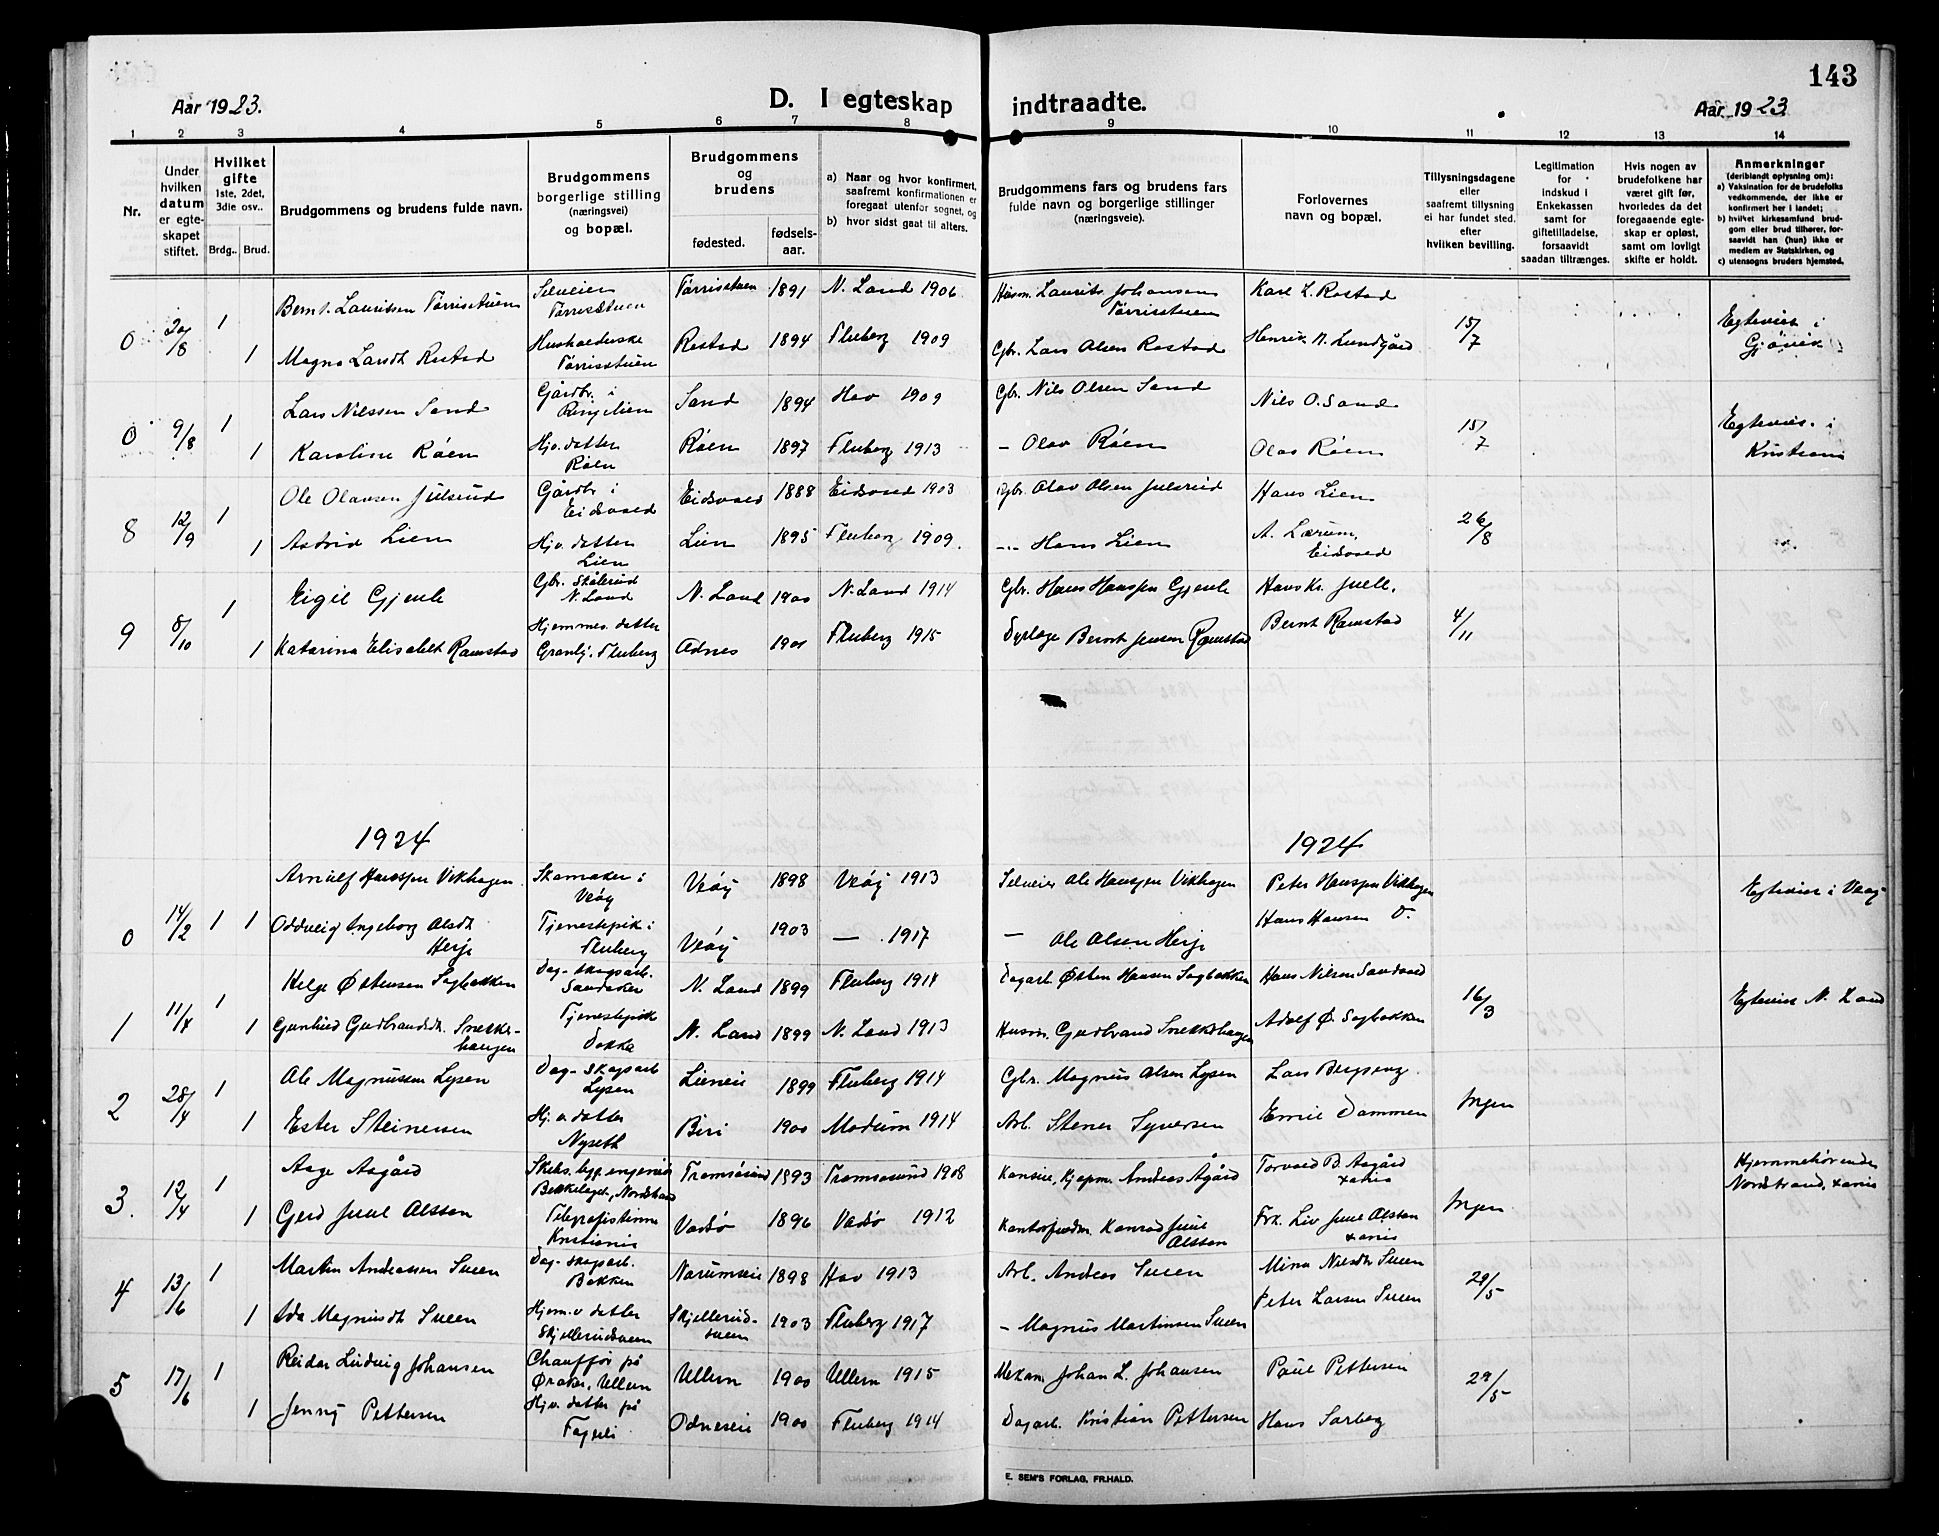 143
Aar 1923.
D. I egteskap
indtraadte.
Aar 1923
1 2 3 4 5 6 7 8 9 10 11 12 13 14
Nr.
Under hvilken datum er egteskapet stiftet.
Hvilket gifte
1ste, 2det, 3die osv..
Brdg.. Brud.
Brudgommens og brudens fulde navn.
Brudgommens borgerlige stilling (næringsvei) og bopæl.
Brudgommens og brudens
fødested.
fødselsaar.
a) Naar og hvor konfirmert, saafremt konfirmationen er foregaat utenfor sognet, og
b) hvor sidst gaat til alters.
Brudgommens fars og brudens fars fulde navn og borgerlige stillinger (næringsveie).
Forlovernes navn og bopæl.
Tillysningsdagene eller saafremt tillysning ei har fundet sted, efter hvilken bevilling.
Legitimation for indskud i Enkekassen samt for giftetilladelse, forsaavidt saadan tiltrænges.
Hvis nogen av brudefolkene har været gift før, hvorledes da det foregaaende egteskap er opløst, samt om lovligt skifte er holdt.
Anmerkninger
(deriblandt oplysning om):
a) Vaksination for de brudefolks vedkommende, der ikke er konfirmert her i landet;
b) hvilket kirkesamfund brudgom eller brud tilhører, forsaavidt han (hun) ikke er medlem av Statskirken, og
c) utensogns bruders hjemsted.
0 20/8 1 Bernt Lauritsen Tørrisstuen Selveier Tørrisstuen Tørrisstuen 1891 N. Land 1906 Husm. Laurits Johansen Tørrisstuen Karl L. Rostad 15/7 Egteviet i Gjøvik
1 Magna Larsdt. Rostad Husholderske Tørrisstuen Rostad 1894 Fluberg 1909 Gbr. Lars Olsen Rostad Henrik N. Lundgård
0 9/8 1 Lars Nilssen Sand Gårdbr. i Ringelien Sand 1894 Hov 1909 Gbr. Nils Olsen Sand Nils O. Sand 15/7 Egteviet i Kristiania
1 Karoline Røen Hjv. datter Røen Røen 1897 Fluberg 1913 — Olav Røen Olav Røen
8 12/9 1 Ole Olavsen Julsrud Gårdbr. i Eidsvold Eidsvold 1888 Eidsvold 1903 Gbr. Olav Olsen Julsrud Hans Lien 26/8
1 Astrid Lien Hjv. datter Lien Lien 1895 Fluberg 1909. — Hans Lien A. Lærum, Eidsvold
9 8/10 1 Eigil Gjenle Gbr. Skålerud N. Land N. Land 1900 N. Land 1914 Gbr. Hans Hanssen Gjenle Hans Kr. Juell. 4/11
1 Katarina Elisabet Ramstad Hjemmev. datter Granli, Fluberg Odnes 1901 Fluberg 1915 Dyrlæge Bernt Jensen Ramstad Bernt Ramstad
1924
1924
0 14/2 1 1 Arnulf Hanssen Vikhagen Skomaker i Veøy Veøy 1898 Veøy 1913 Selveier Ole Hanssen Vikhagen Peter Hanssen Vikhagen Egteviet i Veøy
Oddveig Ingeborg Olsdt. Herje Tjenestepik i Fluberg Veøy 1903 — 1917 — Ole Olsen Herje Hans Hansen D.
1 11/4 1 Helge Østensen Sagbakken Dag- skogsarb. Sandaker N. Land 1899 Fluberg 1914 Dagarb. Østen Hansen Sagbakken Hans Nilsen Sandvold 16/3 Egteviet N. Land
1 Gunhild Gudbrandsdt. Snekkehaugen Tjenestepik Dokka N. Land 1899 N. Land 1913 Husm. Gudbrand Snekkehaugen Adolf Ø. Sagbakken
2 28/4 1 Ole Magnussen Lysen Dag- skogsarb Lysen Lieneie 1899 Fluberg 1914 Gbr. Magnus Olsen Lysen Lars Bergseng. Ingen
1 Ester Steinersen Hj. v. datter Nyseth Biri 1900 Modum 1914 Arb. Stener Syversen Emil Dammen
3. 12/4 1 Aage Aagård Skibs. byg. engeniør Bekkelaget, Nordstrand Tromsøsund 1893 Tromsøsund 1908 Konsul, Kjøpm. Andreas Ågård Torvald B. Aagård Xania Ingen Hjemmehørende Nordstrand, Xania
1 Gerd Juul Olsson Telegrafistinne Kristiania Vadsø 1896 Vadsø 1912 Kontorfuldm. Konrad Juul Olsson Frk. Liv Juul Olsson Xania
4 13/6 1 Martin Andreassen Sueen Dag- skogsarb. Bakken Narumseie 1898 Hov 1913 Arb. Andreas Sueen Mina Nilsdt. Sueen 29/5
1 Ada Magnusdt Sueen Hjem. v datter Skjellerudsueen Skjellerudsueen 1903 Fluberg 1917 — Magnus Martinsen Sueen Peter Larsen Sueen
5 17/6 1 Reidar Ludvig Johansen Chauffør på Øraker, Ullern Ullern 1900 Ullern 1915 Mekan. Johan L. Johansen Paul Pettersen 29/5
1 Jenny Pettersen Hjv. datter på Fagerli Odneseie 1900 Fluberg 1914 Dagarb. Kristian Pettersen Hans Sørberg
E. SEM'S FORLAG, FR.HALD.